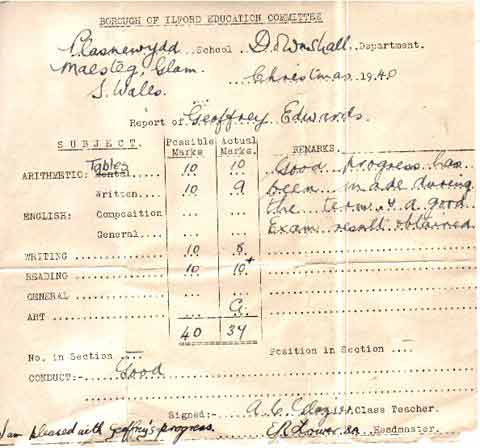 BOROUGH OF ILFORD EDUCATION COMMITTEE
Plasnewydd School Downshall Department.
Maesteg, Glam. Christmas 1940
S. Wales.
Report of Geoffrey Edwards.
SUBJECT. Possible Marks Actual Marks. REMARKS.
ARITHMETIC: Tables Mental 10 10 Good progress has
Written 10 9 been made during
ENGLISH: Composition ... ... the term & a good
General .... ... ... Exam result obtained
WRITING 10 5
READING 10 10+
GENERAL ... ...
ART ... G
40 34
No. in Section .... Position in Section ....
CONDUCT:- Good
Signed:- A. C. Class Teacher.
I am pleased with Geoffrey's progress. Headmaster.